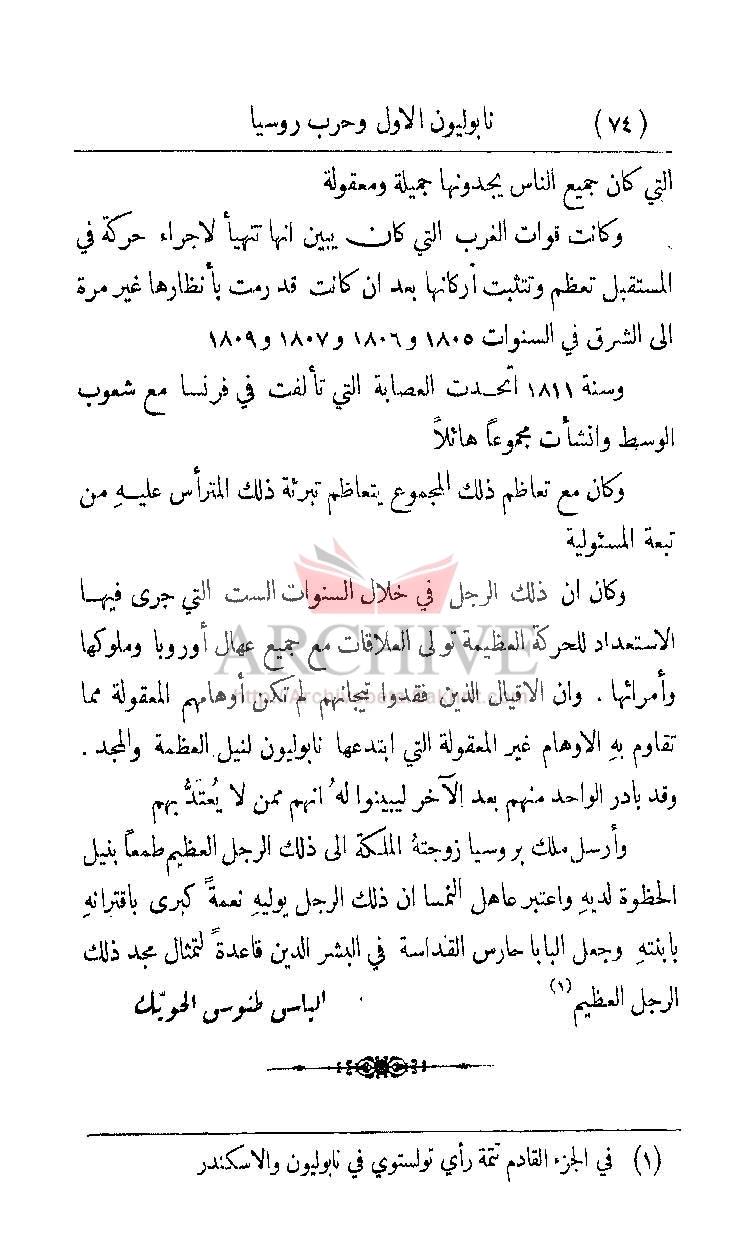 (٧٤) نابوليون الاول وحرب روسيا
التي كان جميع الناس يجدونها جميلة ومعقولة
وكانت قوات الغرب التي كان يبين انها تتهيأ لاجراء حركة في
المستقبل تعظم وتتثبت أركانها بعد ان كانت قد رمت بأنظارها غير مرة
الى الشرق في السنوات ١٨٠٥ و ١٨٠٦ و ١٨٠٧ و ١٨٠٩
وسنة ١٨١١ اتحدت العصابة التي تألفت في فرنسا مع شعوب
الوسط وانشأت مجموعاً هائلاً
وكان مع تعاظم ذلك المجموع يتعاظم تبرئة ذلك المترأس عليهِ من
تبعة المسئولية
وكان ان ذلك الرجل في خلال السنوات الست التي جرى فيها
الاستعداد للحركة العظيمة تولى العلاقات مع جميع عهال أوروبا وملوكها
وأمرائها . وان الاقيال الذين فقدوا تيجانهم لم تكن أوهامهم المعقولة مما
تقاوم بهِ الاوهام غير المعقولة التي ابتدعها نابوليون لنيل العظمة والمجد .
وقد بادر الواحد منهم بعد الآخر ليبينوا لهُ انهم ممن لا يُعتَدُّ بهم
وأرسل ملك بروسيا زوجتهُ الملكة الى ذلك الرجل العظيم طمعاً بنيل
الحظوة لديهِ واعتبر عاهل النمسا ان ذلك الرجل يوليهِ نعمةً كبرى باقترانهِ
بابنتهِ وجعل البابا حارس القداسة في البشر الدين قاعدةً لتمثال مجد ذلك
الرجل العظيم (١) الياس طنوس الحويك
(١) في الجزء القادم تتمة رأي تولستوي في نابوليون والاسكندر
ARCHIVE